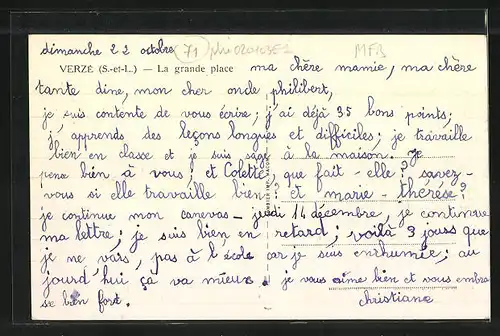 dimanche 22 octobre
71
MFB
VERZÉ (S.-et-L.) — La grande place
ma chère mamie, ma chère
tante dine, mon cher oncle philibert,
je suis contente de vous écrire; j'ai déjà 35 bons points;
j'apprends des leçons longues et difficiles; je travaille
bien en classe et je suis sage à la maison. Je
pense bien à vous; et Colette que fait-elle? savez-
vous si elle travaille bien? et marie-thérèse?
je continue mon canevas - jeudi 14 décembre, je continue
ma lettre; je suis bien en retard; voilà 3 jours que
je ne vais, pas à l'école car je suis enrhumée; au
jourd'hui ça va mieux. je vous aime bien et vous embras
se bien fort. christiane